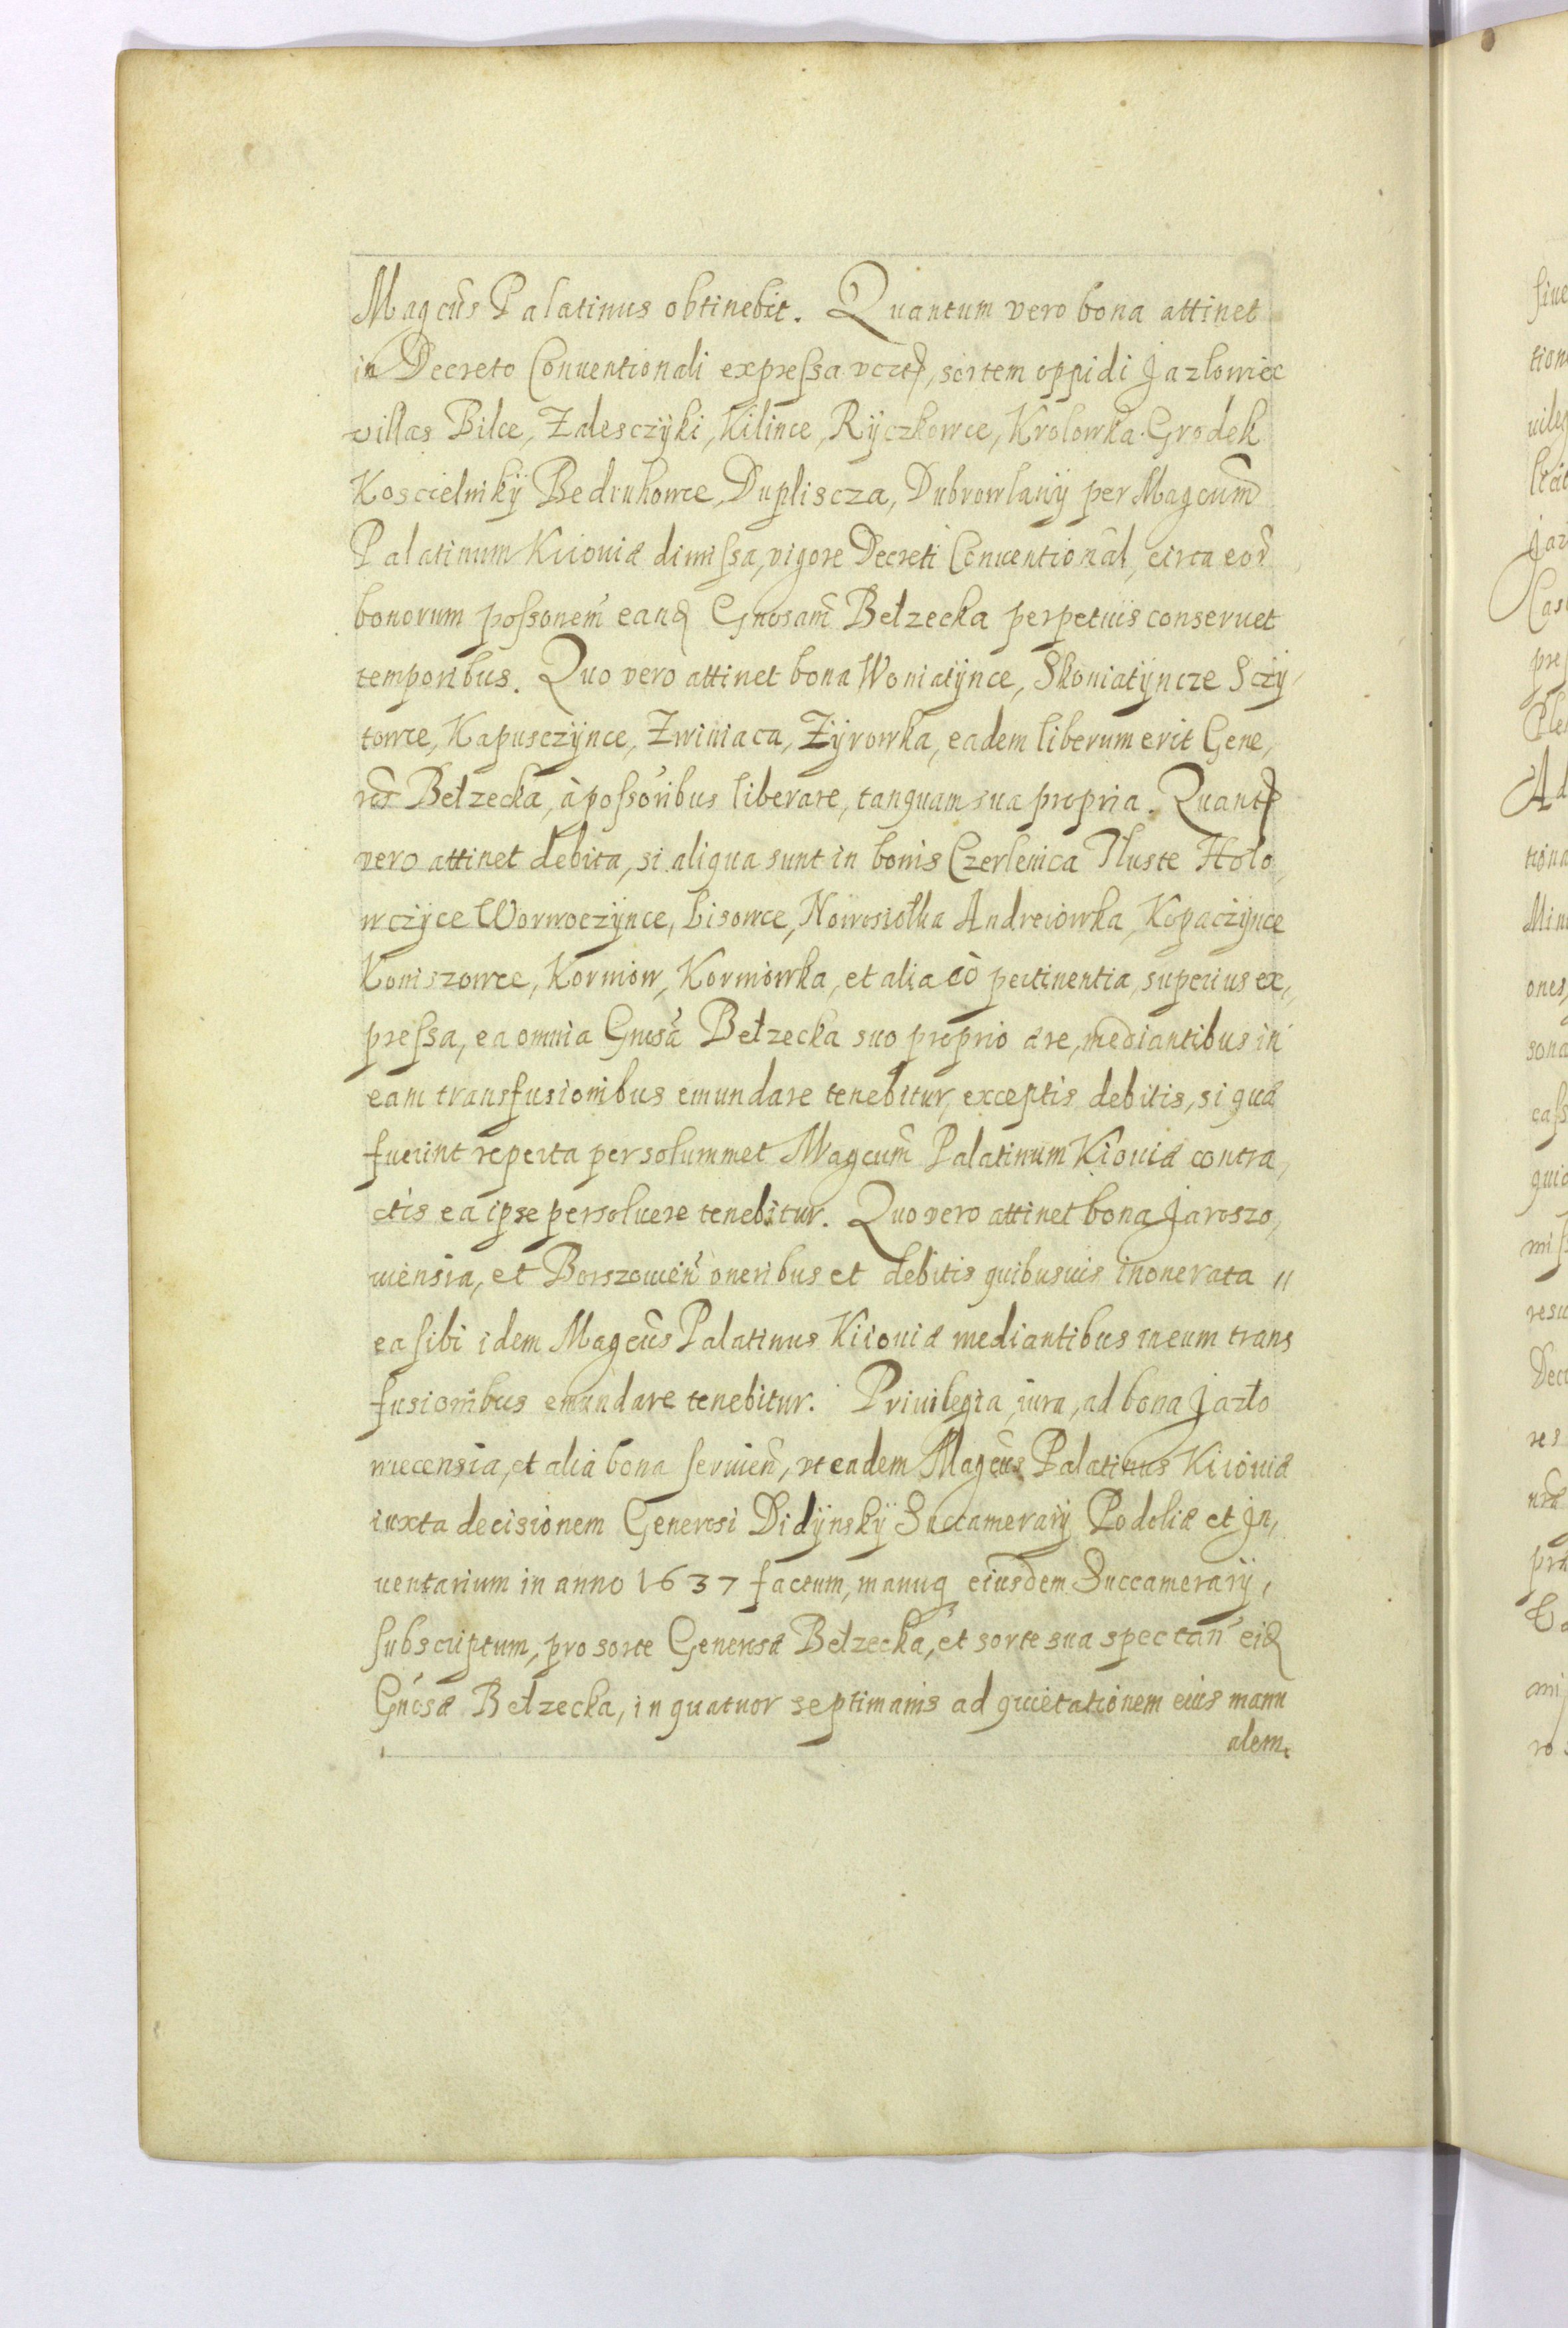 Magcũs Palatinus obtinebit. Quantum vero bona attinet
in Decreto Conuentionali expressa, sortem oppidi Jazlowiec
villas Bilce, Zalesczÿki, Kilince, Rÿczkowce, Krolowka Grodek
Koscielnikÿ Bedruhowce, Dupliscza, Dubrowlanÿ per Magcum̃
Palatinum Kiiouiæ dimissa, vigore Decreti Conuentional, circa eor̃
bonorum possonem̃ eand Gnosam̃ Bełzecka perpetuis conseruet
temporibus. Quo vero attinet bona Woniatÿnce, Skoniatÿncze Sczÿ,
towce, Kapusczÿnce, Zwiniaca, Żÿrowka, eadem liberum erit Gene,
rosæ Bełzecka, à possoribus liberare, tanquam sua propria. Quant
vero attinet debita, si aliqua sunt in bonis Czerlenica Tłuste Hoło,
wczÿce Worwoczÿnce, Lisowce, Nowosiołka Andreiowka, Kopaczÿnce
Koniszowce, Korniow, Korniowka, et alia eò pertinentia, superius ex,,
pressa, ea omnia Gnosã Bełzecka suo proprio ære, mediantibus in
eam transfusionibus emundare tenebitur, exceptis debitis, si quæ
fuerint reperta per solummet Magcum̃ Palatinum Kiouiæ contra,
ctis ea ipse persoluere tenebitur. Quo vero attinet bona Jaroszo,
uiensia, et Borszouien̄ oneribus et debitis quibusuis inonerata //
ea sibi idem Magcũs Palatinus Kiiouiæ mediantibus in eum trans
fusionibus emundare tenebitur. Priuilegia, iura, ad bona Jazło
wiecensia, et alia bona seruien̄, vt eadem Magcũs Palatinus Kiiouiæ
iuxta decisionem Generosi Didÿnskÿ Succamerarÿ Podoliæ et Jn,
uentarium in anno 1637 factum, manuq eiusdem Succamerarÿ,
subscriptum, pro sorte Generosæ Bełzecka, et sorte sua spectan̄ eid
Gnosæ Bełzecka, in quatuor septimanis ad quietationem eius manu
alem.